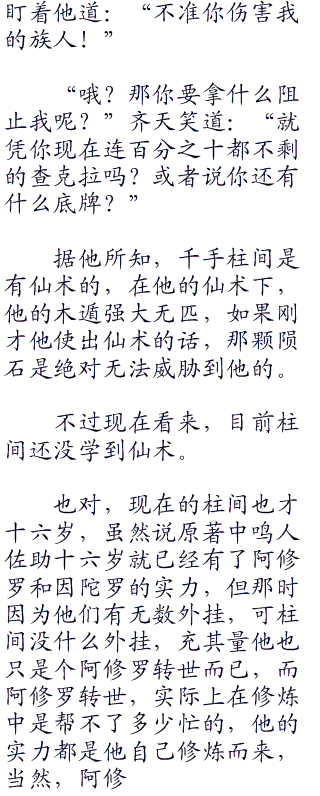 盯着他道：“不准你伤害我
的族人！”
“哦？那你要拿什么阻
止我呢？”齐天笑道：“就
凭你现在连百分之十都不剩
的查克拉吗？或者说你还有
什么底牌？”
据他所知，千手柱间是
有仙术的，在他的仙术下，
他的木遁强大无匹，如果刚
才他使出仙术的话，那颗陨
石是绝对无法威胁到他的。
不过现在看来，目前柱
间还没学到仙术。
也对，现在的柱间也才
十六岁，虽然说原著中鸣人
佐助十六岁就已经有了阿修
罗和因陀罗的实力，但那时
因为他们有无数外挂，可柱
间没什么外挂，充其量他也
只是个阿修罗转世而已，而
阿修罗转世，实际上在修炼
中是帮不了多少忙的，他的
实力都是他自己修炼而来，
当然，阿修